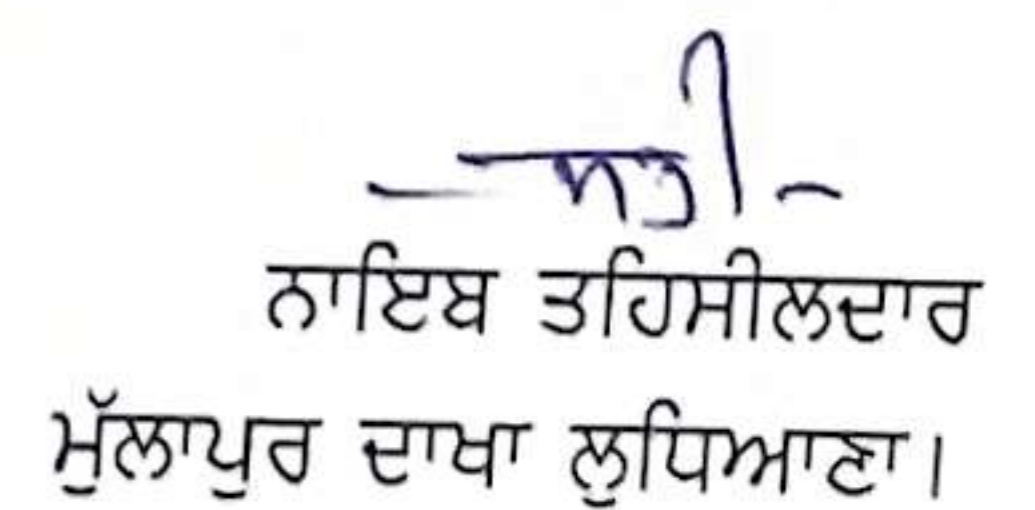 — ਸਹੀ -
ਨਾਇਬ ਤਹਿਸੀਲਦਾਰ
ਮੁੱਲਾਪੁਰ ਦਾਖਾ ਲੁਧਿਆਣਾ।